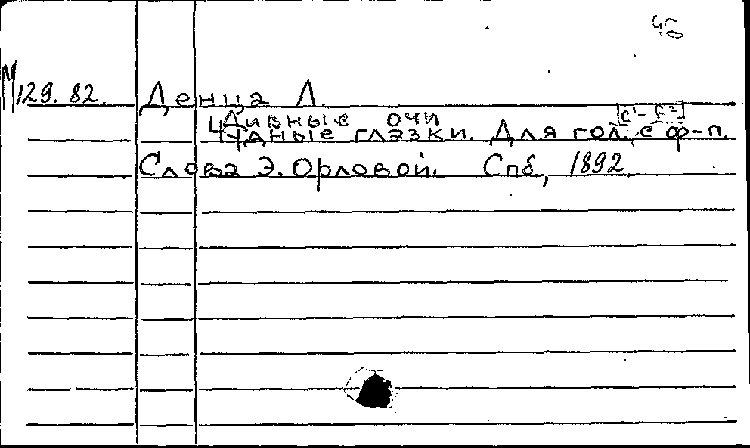 45
М129.82. Денца Л.
Дивные очи [c¹-f²]
Чудные глазки. Для гол. с ф-п.
Слова Э. Орловой. Спб, 1892